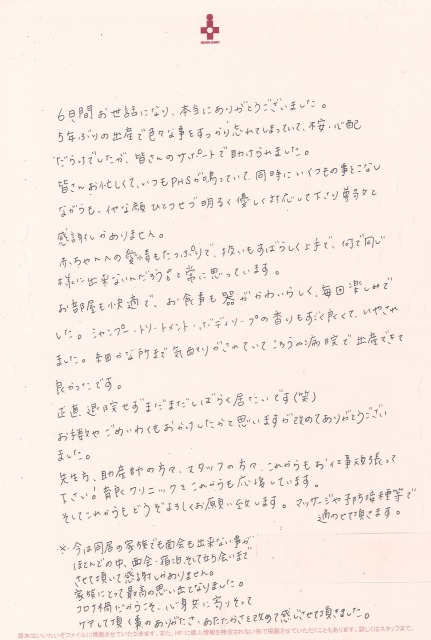 6日間お世話になり、本当にありがとうございました。
5年ぶりの出産で色々な事をすっかり忘れてしまっていて、不安・心配
だらけでしたが、皆さんのサポートで助けられました。
皆さんお忙しくて、いつもPHSが鳴っていて、同時にいくつもの事をこなし
ながらも、イヤな顔ひとつせづ明るく優しく対応して下さり尊敬と
感謝しかありません。
赤ちゃんへの愛情もたっぷりで、扱いもすばらしく上手で、何で同じ
様に出来ないんだろう?と常に思っています。
お部屋も快適で、お食事も器がかわいらしく、毎回楽しみで
した。シャンプー・トリートメント・ボディソープの香りもすごく良くて、いやされ
ました。細かな所まで気配りがされていて、こちらの病院で出産できて
良かったです。
正直、退院せずまだまだしばらく居たいです(笑)
お手数やごめいわくもおかけしたかと思いますが改めてありがとうござい
ました。
先生方、助産師の方々、スタッフの方々、これからもお仕事頑張って
下さい!育良クリニックをこれからも応援しています。
そしてこれからもどうぞよろしくお願い致します。マッサージや予防接種等で
通わせて頂きます。
※今は同居の家族でも面会も出来ない事が
ほとんどの中、面会・宿泊、そして立ち会いまで
させて頂いて感謝しかありません。
家族にとって最高の思い出となりました。
コロナ禍だからこそ、心身共に寄りそって
ケアして頂く事のありがたさ、あたたかさを改めて感じさせて頂きました。
原本はいいたいぞファイルに掲載させていただきます。また、HPに個人情報を特定されない形で掲載させていただくこともあります。詳しくはスタッフまで。